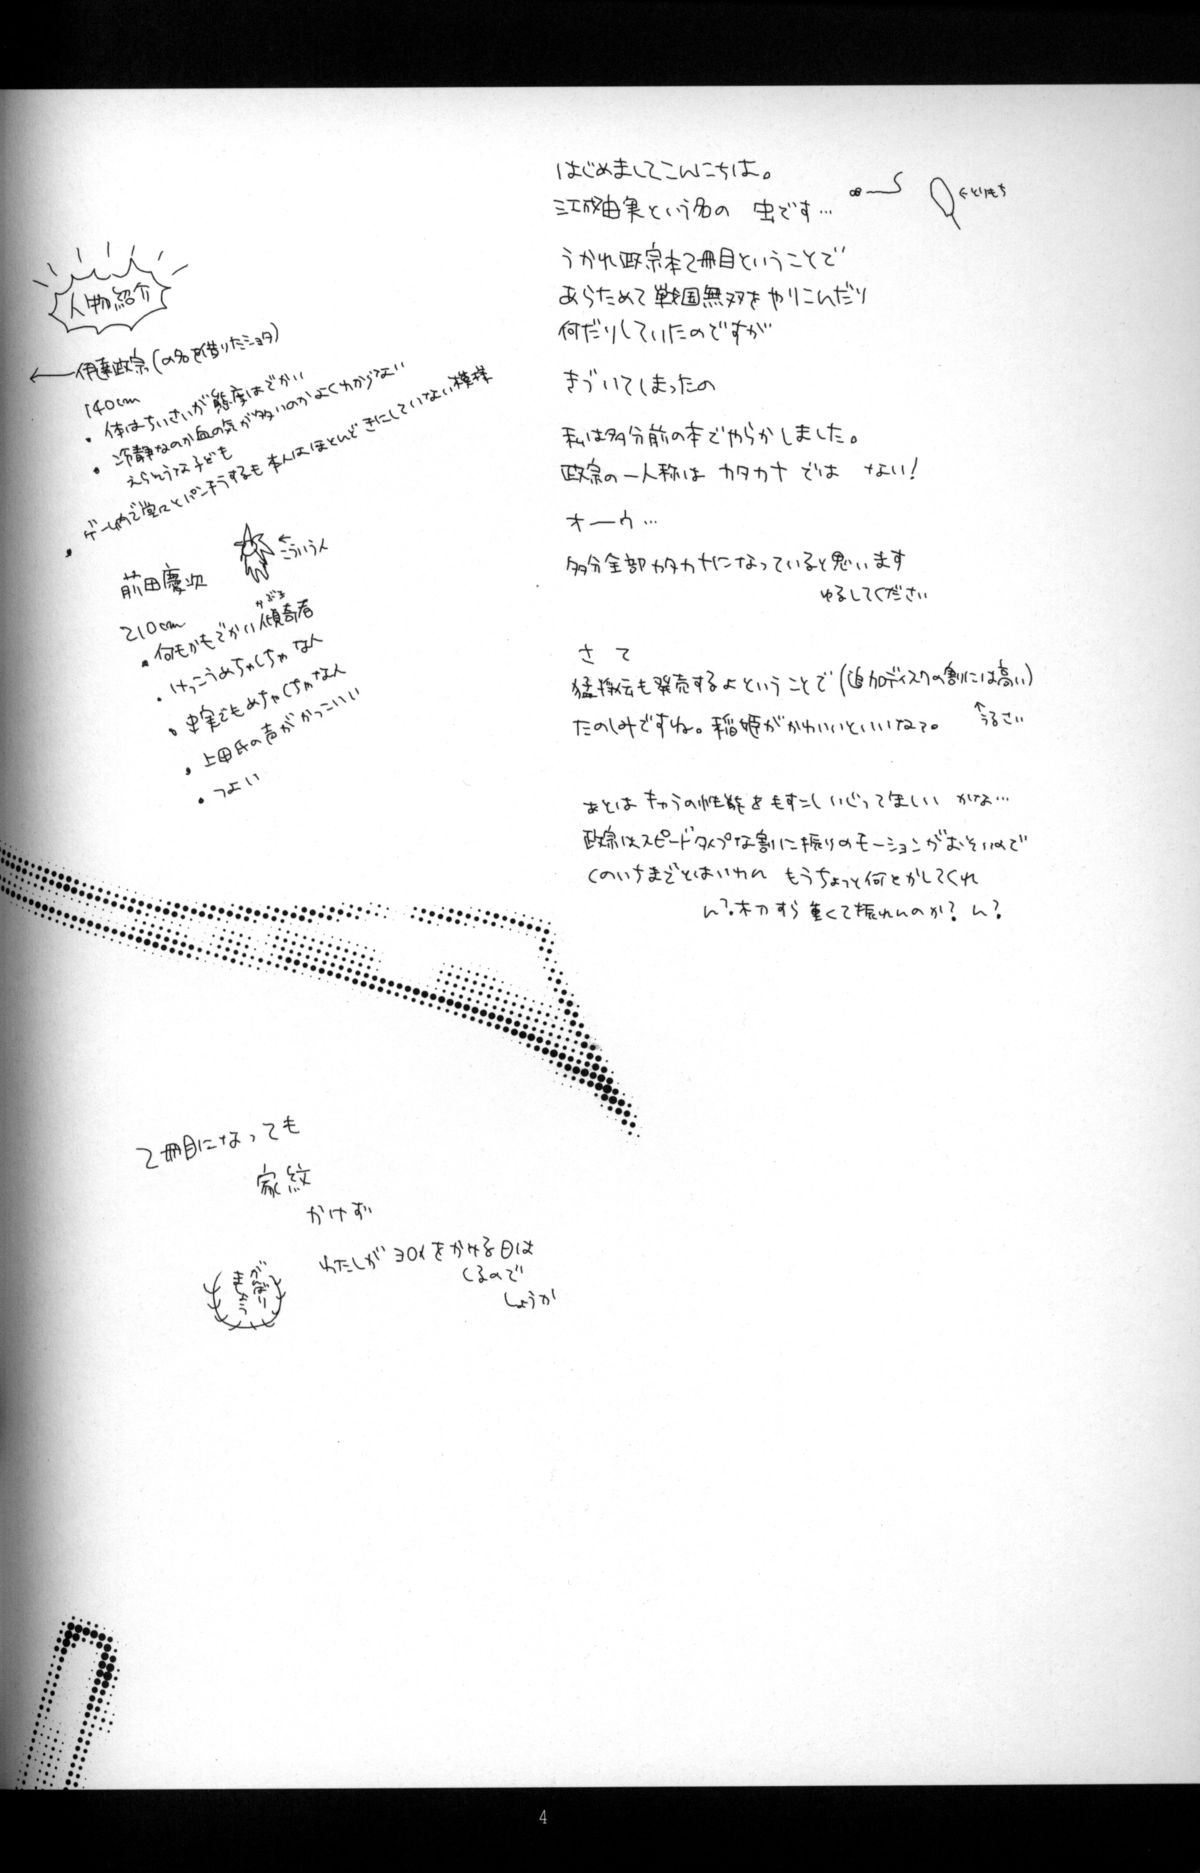 はじめましてこんにちは。
江成由実という名の 虫です…
←とりもち
うかれ政宗本2冊目ということで
あらためて戦国無双をやりこんだり
何だりしていたのですが
きづいてしまったの
私は多分前の本でやらかしました。
政宗の一人称は カタカナ では ない!
オーウ…
多分全部カタカナになっていると思います
ゆるしてください
さて
猛将伝も発売するよということで(追加ディスクの割には高い)
↑うるさい
たのしみですね。稲姫がかわいいといいなて。
あとは キャラの性能をもすこしいじってほしい かな…
政宗はスピードタイプな割に振りのモーションがおそいので
くのいちまでとはいわん もうちょっと何とかしてくれ
ん?木刀すら重くて振れんのか? ん?
人物紹介
←伊達政宗(の名を借りたショタ)
140cm
・体はちいさいが態度はでかい
・冷静なのか血の気が多いのかよくわからない
えらそうな子ども
・ゲーム内で堂々とパンチラするも本人はほとんどきにしていない模様
前田慶次
←こういう人
210cm
かぶき
・何もかもでかい傾奇者
・けっこうめちゃくちゃな人
・史実でもめちゃくちゃな人
・上田氏の声がかっこいい
・つよい
2冊目になっても
家紋
かけず
わたしがヨロイをかける日は
くるので
しょうか
がんばり
ましょう
4